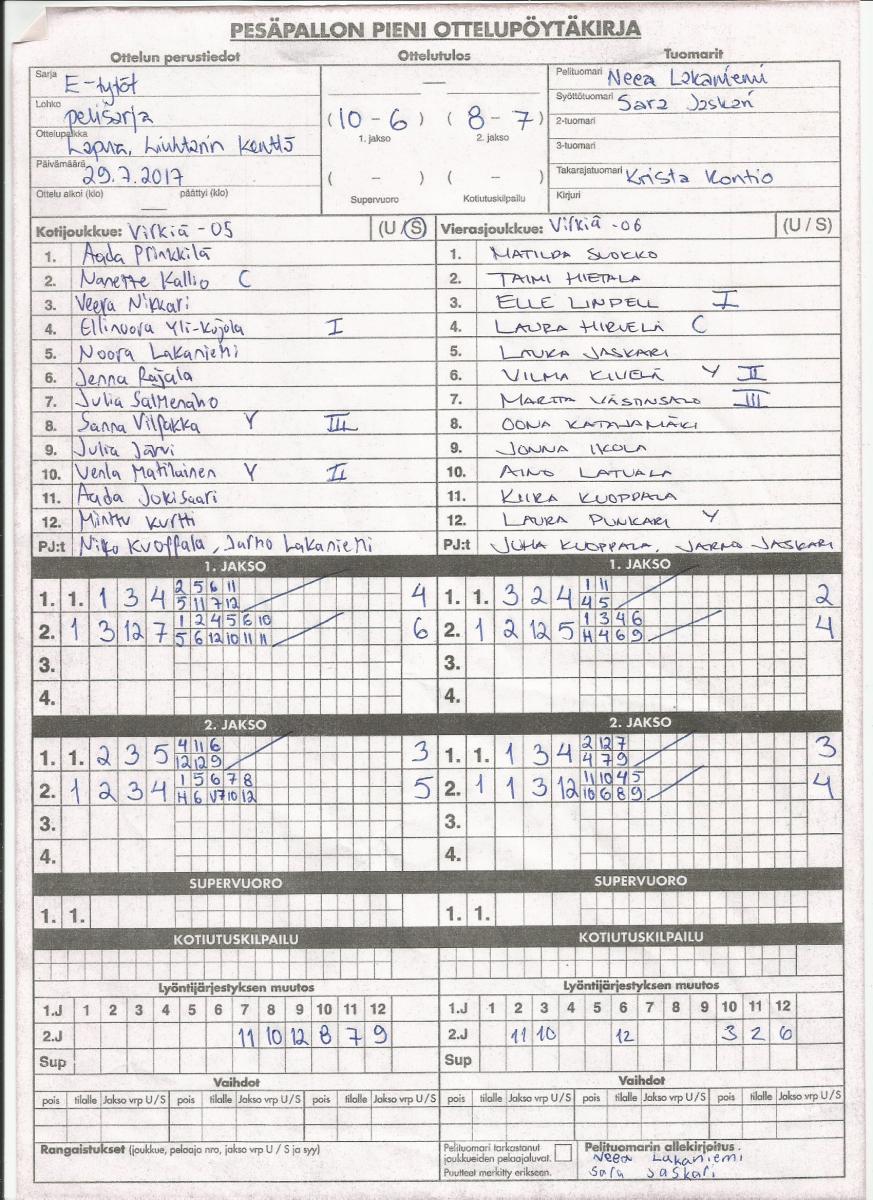 PESÄPALLON PIENI OTTELUPÖYTÄKIRJA
Ottelun perustiedot
Ottelutulos
Tuomarit
Sarja E-tytöt
Lohko pelisarja
Ottelupaikka Lapua, Liuhtarin kenttä
Päivämäärä 29.7.2017
Ottelu alkoi (klo) päättyi (klo) —
—
(10 - 6) (8 - 7)
1. jakso 2. jakso
( - ) ( - )
Supervuoro Kotiutuskilpailu
Pelituomari Neea Lakaniemi
Syöttötuomari Sara Jaskari
2-tuomari
3-tuomari
Takarajatuomari Krista Kontio
Kirjuri
Kotijoukkue: Virkiä -05 (U/S)
1. Aada Prinkkilä
2. Nanette Kallio C
3. Veera Nikkari
4. Ellinoora Yli-Kujala I
5. Noora Lakaniemi
6. Jenna Rajala
7. Julia Salmenaho
8. Sanna Vilpakka Y III
9. Julia Järvi
10. Venla Matilainen Y II
11. Aada Jokisaari
12. Minttu Kurtti
PJ:t Niko Kuoppala, Jarno Lakaniemi
Vierasjoukkue: Virkiä -06 (U/S)
1. MATILDA SUOKKO
2. TAIMI HIETALA
3. ELLE LINDELL I
4. LAURA HIRVELÄ C
5. LAURA JASKARI
6. VILMA KIVELÄ Y II
7. MARTTA VÄSTINSALO III
8. OONA KATAJAMÄKI
9. JONNA IKOLA
10. AINO LATVALA
11. KIIRA KUOPPALA
12. LAURA PUNKARI Y
PJ:t JUHA KUOPPALA, JARNO JASKARI
1. JAKSO
1. 1. 1 3 4 2 5 6 11 4
5 11 7 12
2. 1 3 12 7 1 2 4 5 6 10 6
5 6 12 10 11 11
3.
4.
1. JAKSO
1. 1. 3 2 4 1 11 2
4 5
2. 1 2 12 5 1 3 4 6 4
H 4 6 9
3.
4.
2. JAKSO
1. 1. 2 3 5 4 11 6 3
12 12 9
2. 1 2 3 4 1 5 6 7 8 5
H 6 V7 10 12
3.
4.
2. JAKSO
1. 1. 1 3 4 2 12 7 3
4 7 9
2. 1 1 3 12 11 10 4 5 4
10 6 8 9
3.
4.
SUPERVUORO
1. 1.
SUPERVUORO
1. 1.
KOTIUTUSKILPAILU
KOTIUTUSKILPAILU
Lyöntijärjestyksen muutos
1.J 1 2 3 4 5 6 7 8 9 10 11 12
2.J 11 10 12 8 7 9
Sup
Lyöntijärjestyksen muutos
1.J 1 2 3 4 5 6 7 8 9 10 11 12
2.J 11 10 12 3 2 6
Sup
Vaihdot
pois tilalle Jakso vrp U/S pois tilalle Jakso vrp U/S pois tilalle Jakso vrp U/S
Vaihdot
pois tilalle Jakso vrp U/S pois tilalle Jakso vrp U/S pois tilalle Jakso vrp U/S
Rangaistukset (joukkue, pelaaja nro, jakso vrp U / S ja syy)
Pelituomari tarkastanut
joukkueiden pelaajaluvat.
Puutteet merkitty erikseen.
Pelituomarin allekirjoitus.
Neea Lakaniemi
Sara Jaskari